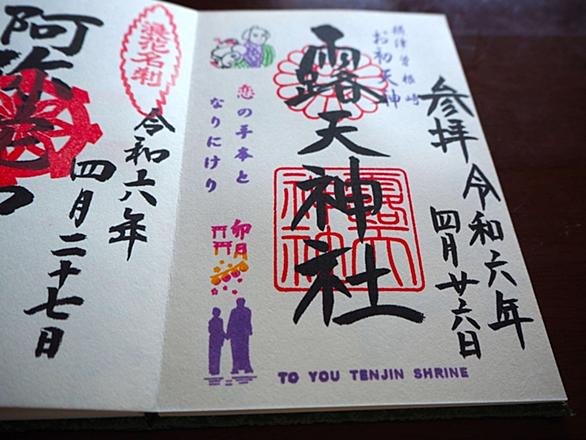 参拝 令和六年
四月廿六日
摂津曽根崎
お初天神
露天神社
恋の手本と
なりにけり
卯月
TO YOU TENJIN SHRINE
浪花名刹
令和六年
四月二十七日
阿弥